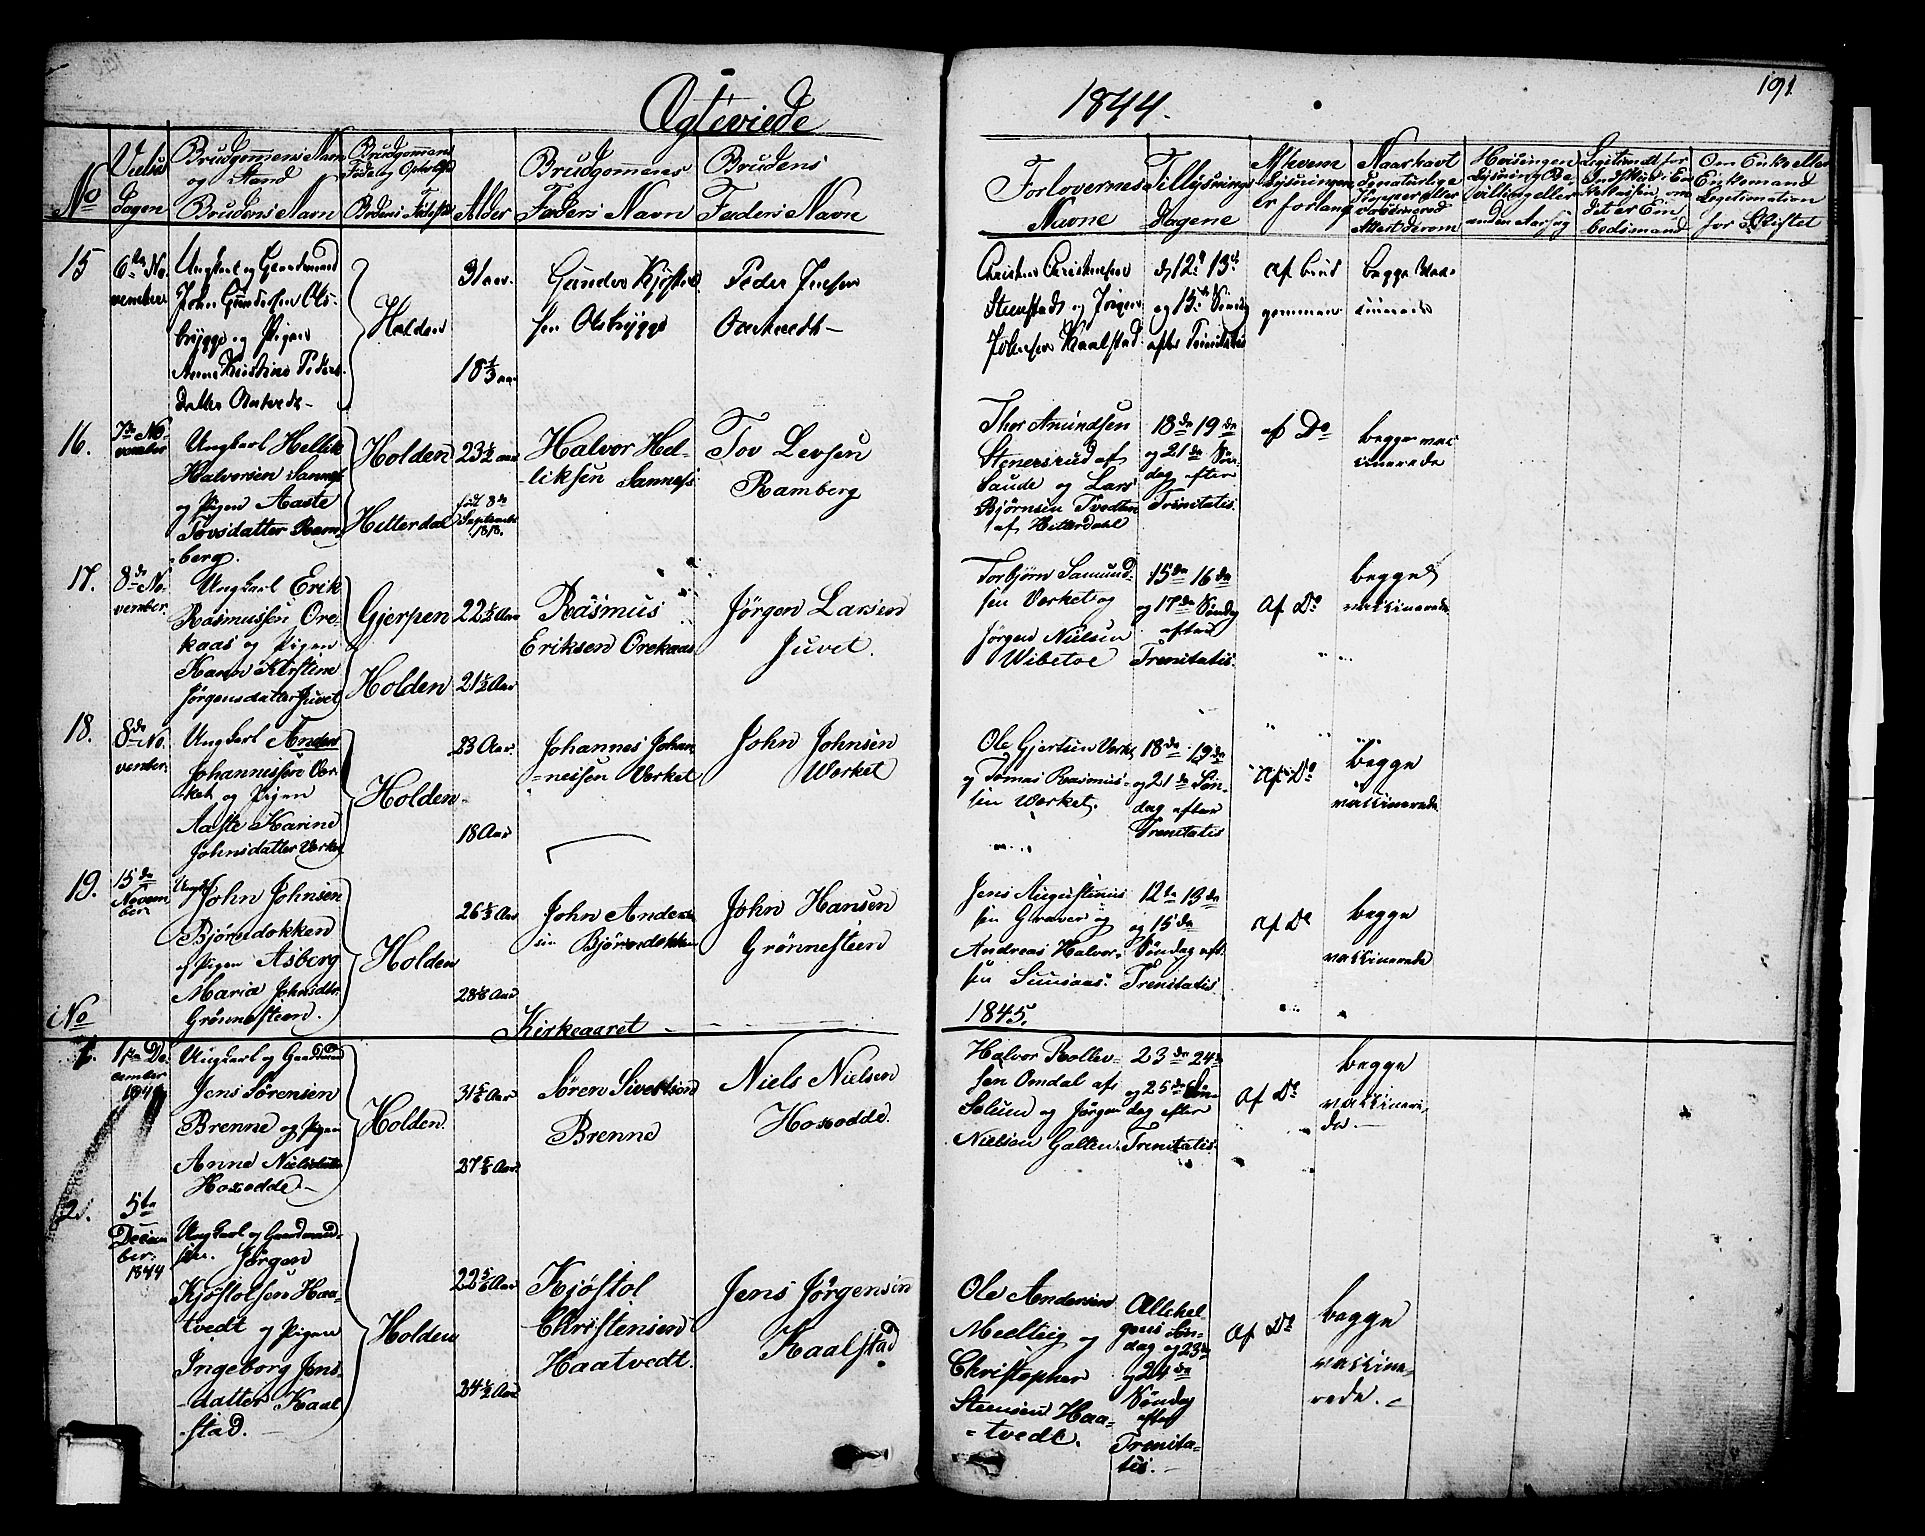 Ægteviede
1844.
191
No
Vielses
Dagen
Brudgommens Navn
og Stand
Brudens Navn
Brudgommens
Føde og Opholdst.
Brudens Fødested
Alder
Brudgommens
Faders Navn
Brudens
Faders Navn
Forlovernes
Navne
Tillysnings
Dagene
Af hvem
Lysningen
er forlangt
Naar havt
de naturlige
Kopper eller
vaksineret
Attest derom
15
6te No-
vember
Ungkarl og Gaardmand
John Gundersen Ols-
brygge og Pigen
Anne Kirstine Peders-
datter
Holden
31 aar.
18 2/3 aar
Gunder Kjøstol-
sen Olsbrygge
Peder Jensen
Christen Christensen
Stenstad og Jørgen
Johnsen Kaalstad
d 12te 13de
og 15de Søndag
efter Trinitatis
af brud
gommen
begge vac-
cinerede
16.
7de No-
vember
Ungkarl Hellik
Halvorsen Sannes
og Pigen Aaste
Tovsdatter Ram-
berg.
Holden
Hitterdal
23 1/2 aar
född 8de
September
1818.
Halvor Hel-
liksen Sannes
Tov Levsen
Ramberg
Thor Amundsen
Stenersrud af
Saude og Lars
Bjørnsen Tvedten
af Hitterdahl
18de 19de
og 21de Søn-
dag efter
Trenitatis.
af Do
begge vac
cinerede
17.
8de No-
vember.
Ungkarl Erik
Rasmussen Ore-
kaas og Pigen
Karen Kirstine
Jørgensdatter Juvet
Gjerpen
Holden
22 1/2 Aar
21 1/2 Aar
Rasmus
Eriksen Orekaas
Jørgen Larsen
Juvet.
Torbjørn Samund-
sen Verket og
Jørgen Nielsen
Wibetoe
15de 16de
og 17de Søndag
efter
Trenitatis.
Af Do
begge
vaksinerede
18.
8de No-
vember.
Ungkarl Anders
Johannessen Ver-
ket og Pigen
Aaste Karine
Johnsdatter Verket
Holden
23 Aar
18 Aar
Johannes Johan-
nesen Verket
John Johnsen
Werket
Ole Gjertsen Verket
og Tomas Rasmus-
sen Værket.
18de 19de
og 21de Søn-
dag efter
Trenitatis
Af Do
begge
vaksinerede
19.
15de
Novem-
ber
Ungk. John Johnsen
Bjørndokken
og Pigen Asberg
Maria Johnsdtr.
Grønnesteen.
Holden
John Anders-
sen Bjørndokken
John Hansen
Grønnesteen
Jens Augustinus-
sen Graver og
Andreas Halvor-
sen
12te 13de
og 15de
Søndag eft.
Trenitatis
af Do
begge
vaksinerede
No
Kirkeaaret
1845.
1.
1ste De-
cember
1844
Ungkarl og Gaardmand
Jens Sørensen
Brenne og Pigen
Anne Nielsdatter
Hoxodde.
Holden.
Søren Sivertsen
Brenne
Niels Nielsen
Hoxodde.
Halvor Rollev-
sen Omdal af
Solum og Jørgen
Nielsen Galten.
23de 24de
og 25de Søn-
dag efter
Trenitatis
Af Do
begge
vaksinere-
de.
2.
5te
Decem-
ber
1844
Ungkarl og Gaardmand-
søn. Jørgen
Kjøstolsen Haa-
tvedt og Pigen
Ingeborg Jens-
datter Kaal-
stad.
Holden
22 5/6 Aar
24 1/2 Aar
Kjøstol
Christensen
Haatvedt.
Jens Jørgensen
Kaalstad
Ole Andersen
Medteig og
Christopher
Steensen Haa-
tvedt.
Allehel-
gens Søn-
dag og 23de
og 24de
Søndag
efter
Trenita-
tis.
Af Do
begge
vaksine-
rede.